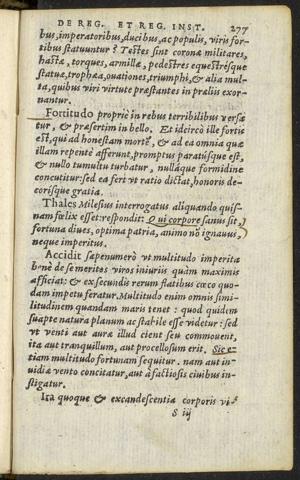 DE REG. ET REG. INST. 277
bus, imperatoribus, ducibus, ac populis, viris for-
tibus statuuntur? Testes sint coronæ militares,
hastæ, torques, armillæ, pedestres equestrésque
statuæ, trophæa, ouationes, triumphi, & alia mul-
ta, quibus viri virtute præstantes in præliis exor-
nantur.
Fortitudo propriè in rebus terribilibus versa
tur, & præsertim in bello. Et idcircò ille fortis
est, qui ad honestam mortē, & ad ea omnia quæ
illam repentè afferunt, promptus paratúsque est,
& nullo tumultu turbatur, nulláque formidine
concutitur: sed ea fert vt ratio dictat, honoris de-
corísque gratia.
Thales Milesius interrogatus aliquando quis-
nam fœlix esset: respondit: Qui corpore sanus sit,
fortuna diues, optima patria, animo nō ignauus,
neque imperitus.
Accidit sæpenumerò vt multitudo imperita
benè de se meritos viros iniuriis quàm maximis
afficiat: & ex secundis rerum flatibus cœco quo-
dam impetu feratur. Multitudo enim omnis simi-
litudinem quandam maris tenet: quod quidem
suapte natura planum ac stabile esse videtur: sed
vt venti aut auræ illud cient seu commouent,
ita aut tranquillum, aut procellosum erit. Sic e-
tiam multitudo fortunam sequitur. nam aut in-
uidiæ vento concitatur, aut à factiosis ciuibus in-
stigatur.
Ita quoque & excandescentia corporis vi-
S iij